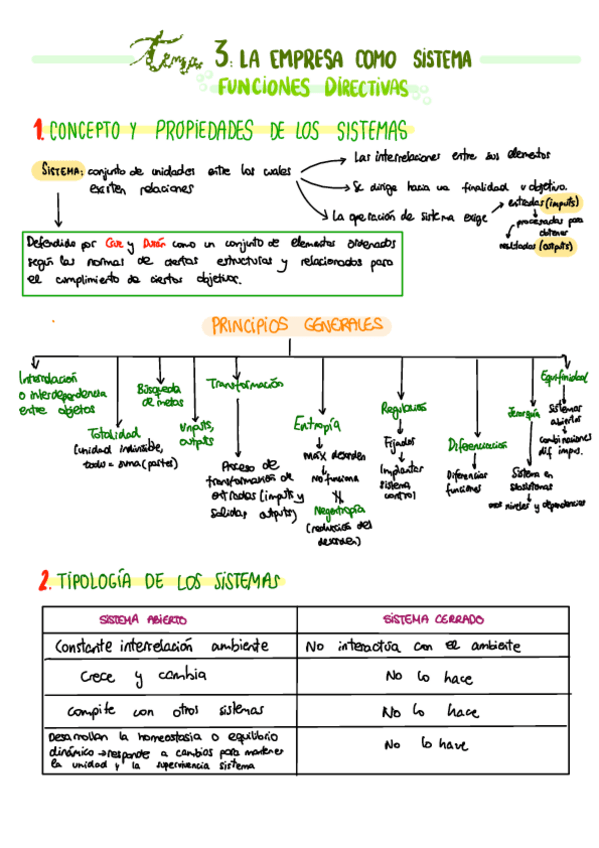 Tema 3: LA EMPRESA COMO SISTEMA
FUNCIONES DIRECTIVAS
1. CONCEPTO Y PROPIEDADES DE LOS SISTEMAS
SISTEMA: conjunto de unidades entre los cuales
existen relaciones
Las interrelaciones entre sus elementos
Se dirige hacia una finalidad u objetivo.
La operación de sistema exige
entradas (imputs)
procesadas para
obtener
resultados (outputs)
Defendido por Cue y Durán como un conjunto de elementos ordenados
según las normas de ciertas estructuras y relacionados para
el cumplimiento de ciertos objetivos.
PRINCIPIOS GENERALES
Interrelación
o interdependencia
entre objetos
Totalidad
(unidad indivisible,
todo = suma (partes)
Búsqueda
de metas
Inputs,
outputs
Transformación
Proceso de
transformación de
entradas (imputs y
salidas outputs)
Entropía
Máx desorden
No funciona
Negentropía
(reducción del
desorden)
Regulación
Fijados
Implantar
sistema
control
Diferenciación
Diferencias
funciones
Jerarquía
Sistema en
subsistemas
mas niveles y dependencias
Equifinidad
Sistemas
abiertos
combinaciones
dif impus.
2. TIPOLOGÍA DE LOS SISTEMAS
SISTEMA ABIERTO
SISTEMA CERRADO
Constante interrelación ambiente
No interactúa con el ambiente
Crece y cambia
No lo hace
Compite con otros sistemas
No lo hace
Desarrollan la homeostasia o equilibrio
dinámico → responde a cambios para mantener
la unidad y la supervivencia sistema
No lo hace